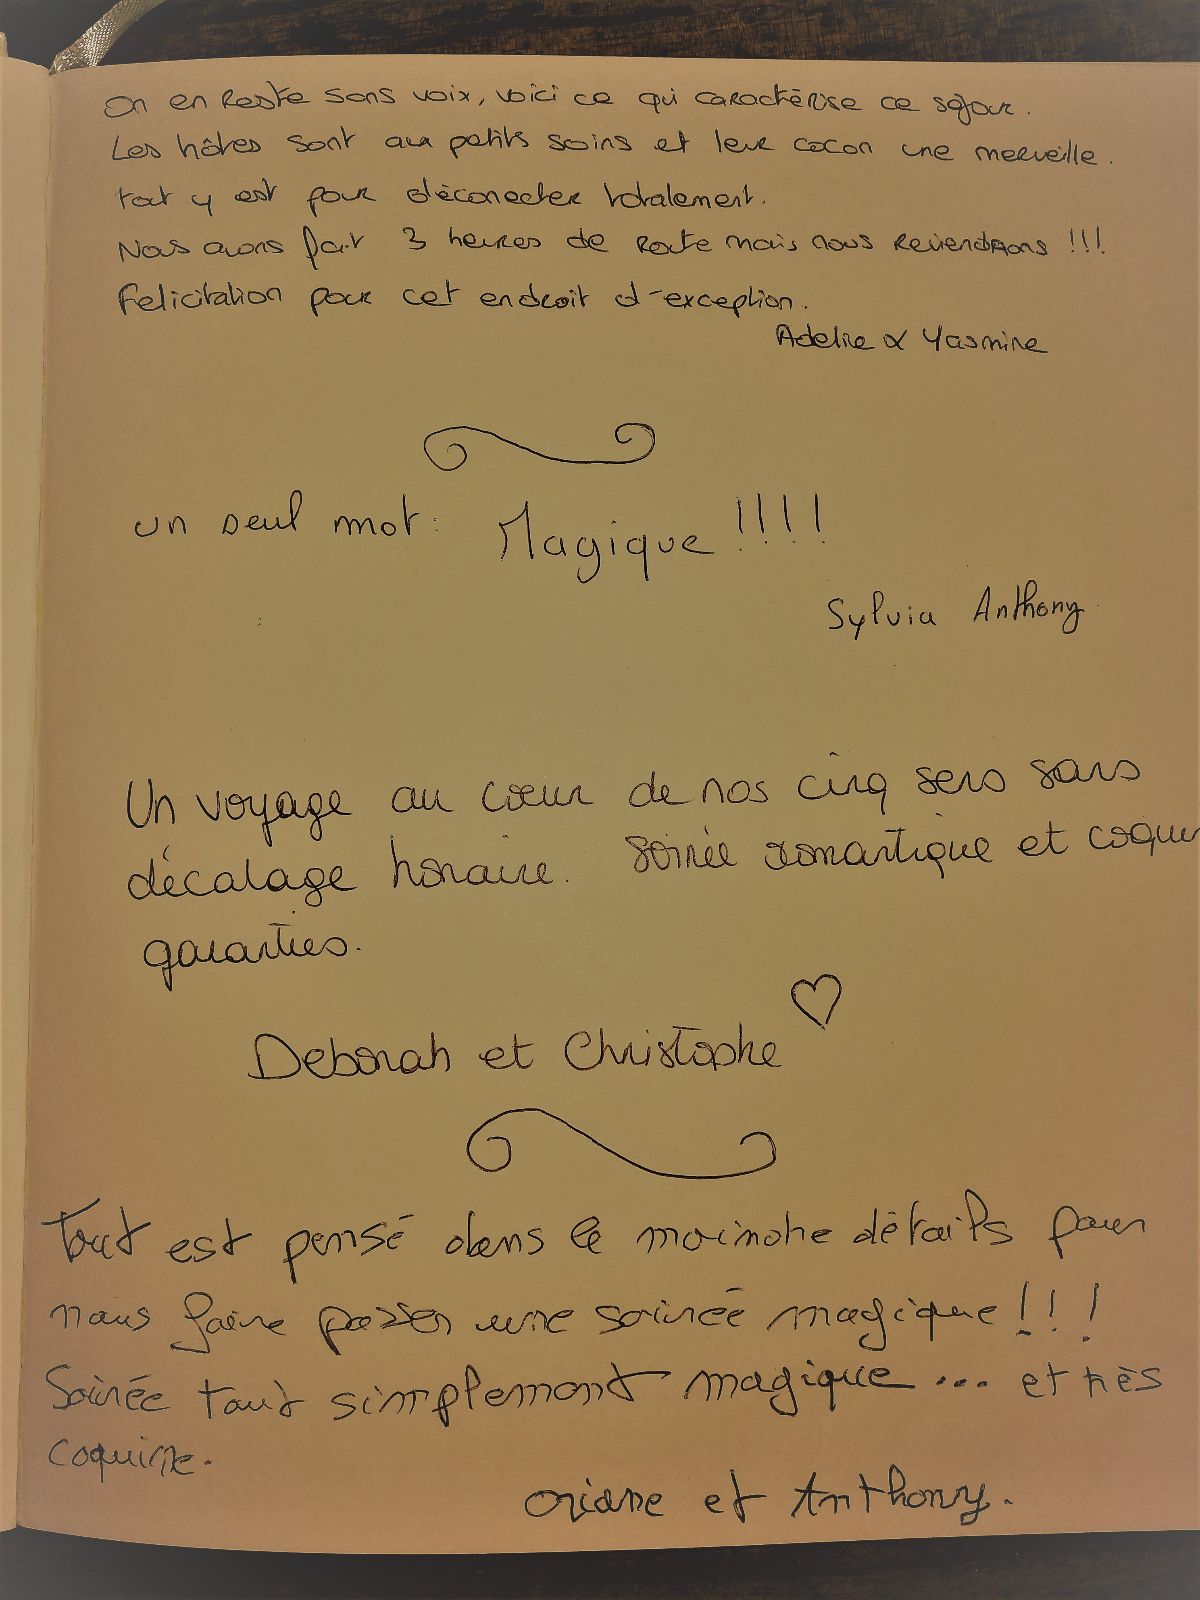 On en reste sans voix, voici ce qui caractérise ce séjour.
Les hôtes sont aux petits soins et leur cocon une merveille.
tout y est pour déconecter totalement.
Nous avons fait 3 heures de route mais nous reviendrons !!!
Felicitation pour cet endroit d'exception.
Adelie & Yasmine
un seul mot: Magique !!!!
Sylvia Anthony
Un voyage au cœur de nos cinq sens sans
décalage horaire. Soirée romantique et coquin
garanties.
Deborah et Christophe
Tout est pensé dans le moindre détails pour
nous faire passer une soirée magique!!!
Soirée tout simplement magique... et très
coquine.
Oriane et Anthony.